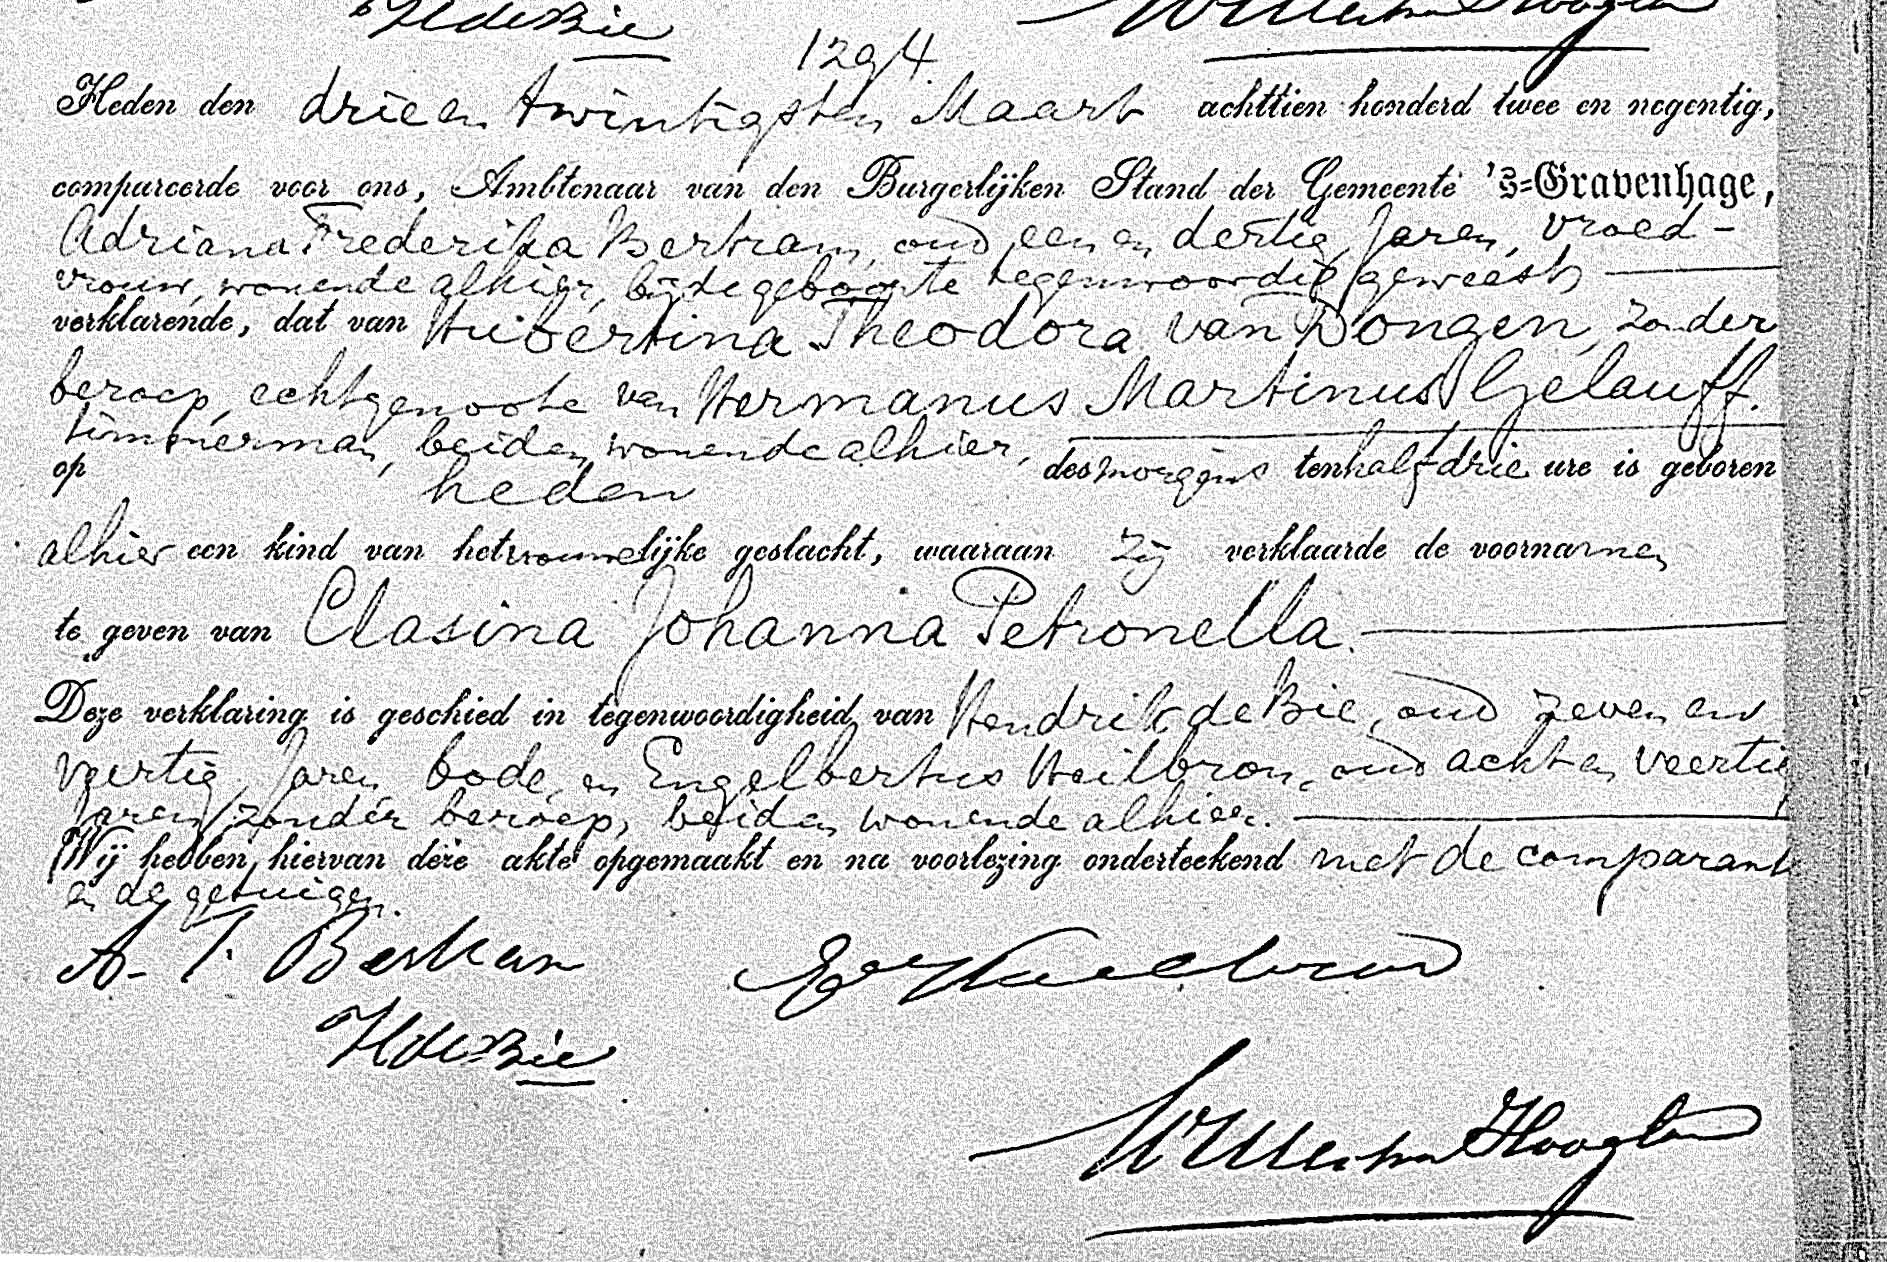 HdeBie
1294.
Heden den drie en twintigsten Maart achttien honderd twee en negentig,
compareerde voor ons, Ambtenaar van den Burgerlijken Stand der Gemeente 's=Gravenhage,
Adriana Frederika Bertram, oud een en dertig Jaren, vroed-
vrouw, wonende alhier, bij de geboorte tegenwoordig geweest,
verklarende, dat van Huibertina Theodora van Dongen, zonder
beroep, echtgenoote van Hermanus Martinus Gelauff.
timmerman, beiden wonende alhier,
op heden des morgens ten half drie ure is geboren
alhier een kind van het vrouwelijke geslacht, waaraan zij verklaarde de voornamen
te geven van Clasina Johanna Petronella.
Deze verklaring is geschied in tegenwoordigheid van Hendrik de Bie, oud zeven en
veertig Jaren, bode, en Engelbertus Heilbron, oud acht en veertig
Jaren, zonder beroep, beiden wonende alhier.
Wij hebben hiervan deze akte opgemaakt en na voorlezing onderteekend met de comparante
en de getuigen.
A. F. Bertram
HdeBie